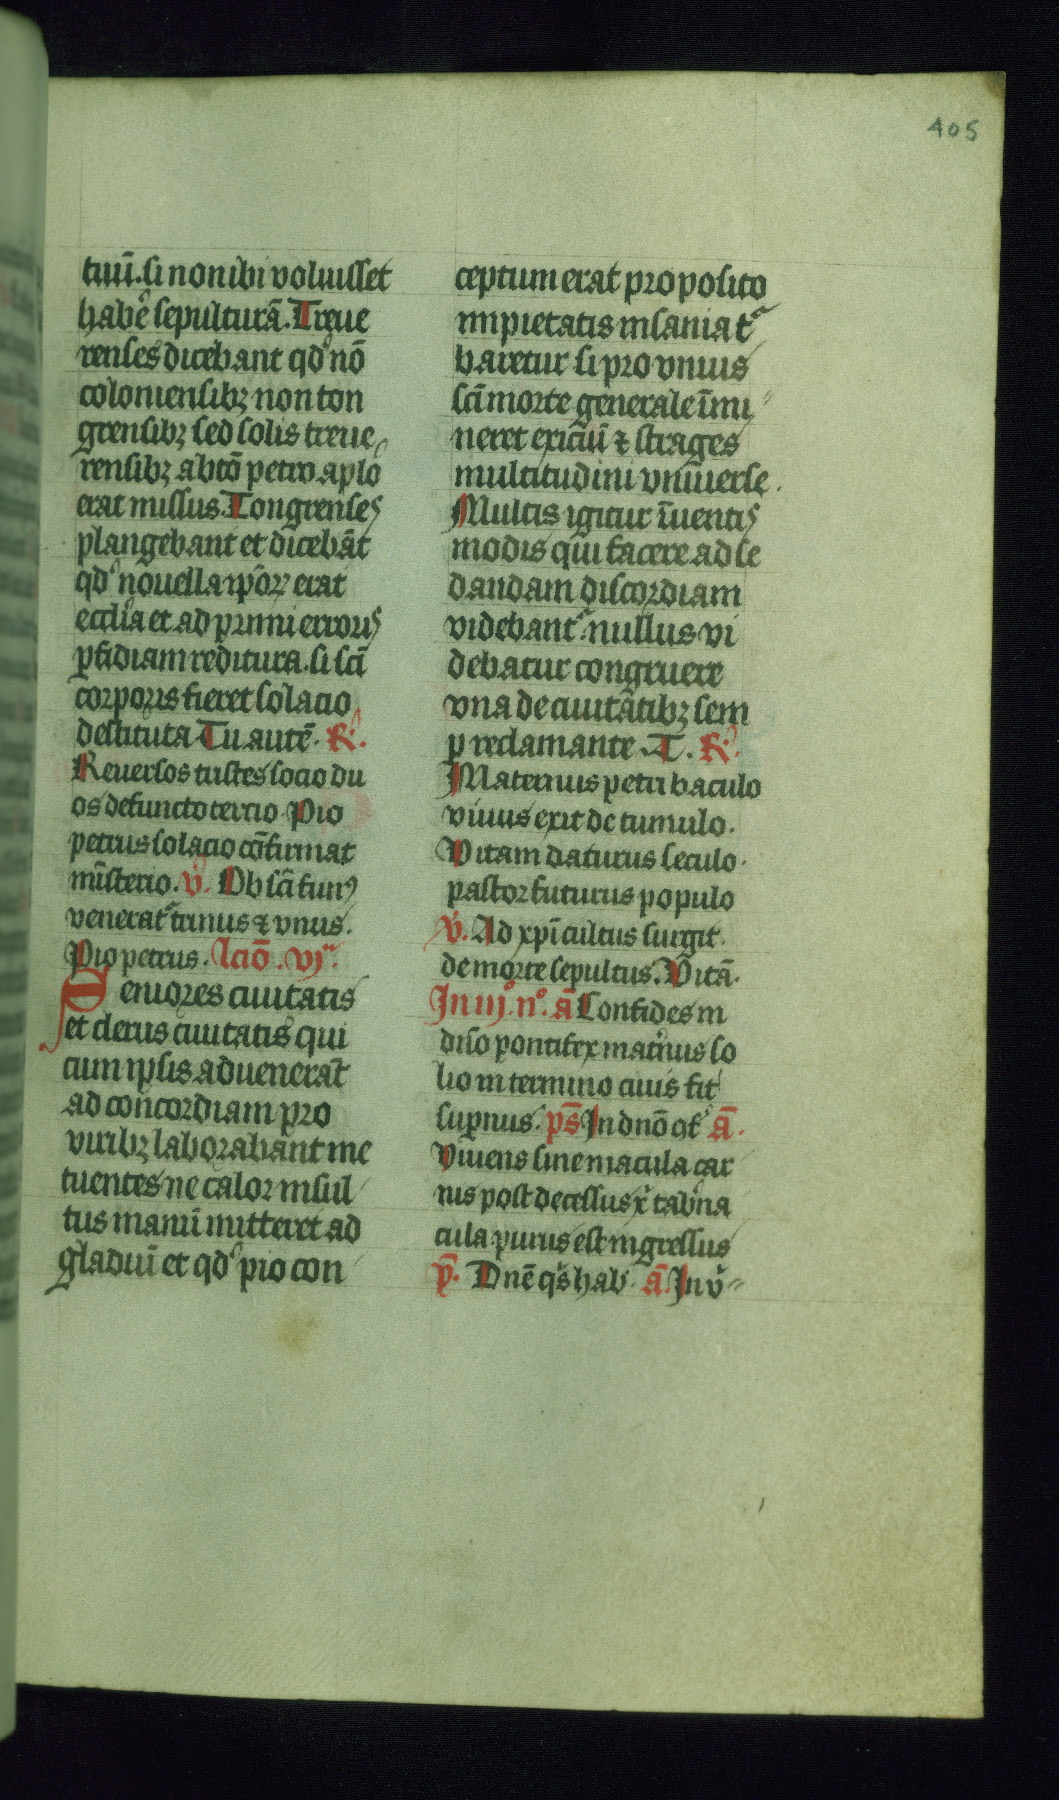 405
tuū. si non ibi voluisset
habe᷒ sepulturā. Treue
renses dicebant qd᷒ nō
coloniensibꝫ non ton
grensibꝫ sed solis treue
rensibꝫ a btō petro aplō
erat missus. Tongrenses
plangebant et dicebāt
qd᷒ nouella ip̄oꝝ erat
eccl̄ia et ad p̱rimi erroris
ꝑfidiam reditura. si scī
corporis fieret solacio
destituta Tu autē. R᷒.
Reuersos tristes socio du
os defuncto tercio. Pio
petrus solacio cōfirmat
mīsterio. v᷒. Ob scī funꝰ
venerat᷒ trinus ⁊ vnus.
Pio petrus. lcīo. vjᵃ.
Seniores ciuitatis
et clerus ciuitatis qui
cum ipsis aduenerāt
ad concordiam pro
viribꝫ laborabant me
tuentes ne calor insul
tus manū mitteret ad
gladiū et qd᷒ pio con
ceptum erat proposito
impietatis insania t᷒
baretur si pro vnius
scī morte generale īmi
neret exiciū ⁊ strages
multitudini vniuerse.
Multis igitur īuentis
modis qui facere ad se
dandam discordiam
videbant᷒ nullus vi
debatur congruere
vna de ciuitātibꝫ sem
ꝑ reclamante. T. R᷒.
Maternus petri baculo
viuus exit de tumulo.
Vitam daturus seculo.
pastor futurus populo
v᷒. Ad xp̄i cultus surgit
de morte sepultus. Vitā.
In iij᷒. n᷒. ā Confidens in
dn̄o pontifex mat᷒nus so
lio in termino ciuis fit
suꝑnus. ps̄ In dnō ꝯf᷒ ā.
Viuens sine macula car
nis post decessus x᷒ tab᷒na
cula purus est ingressus
p̄. Dn̄e q᷒s hab᷒. ā. In v᷒